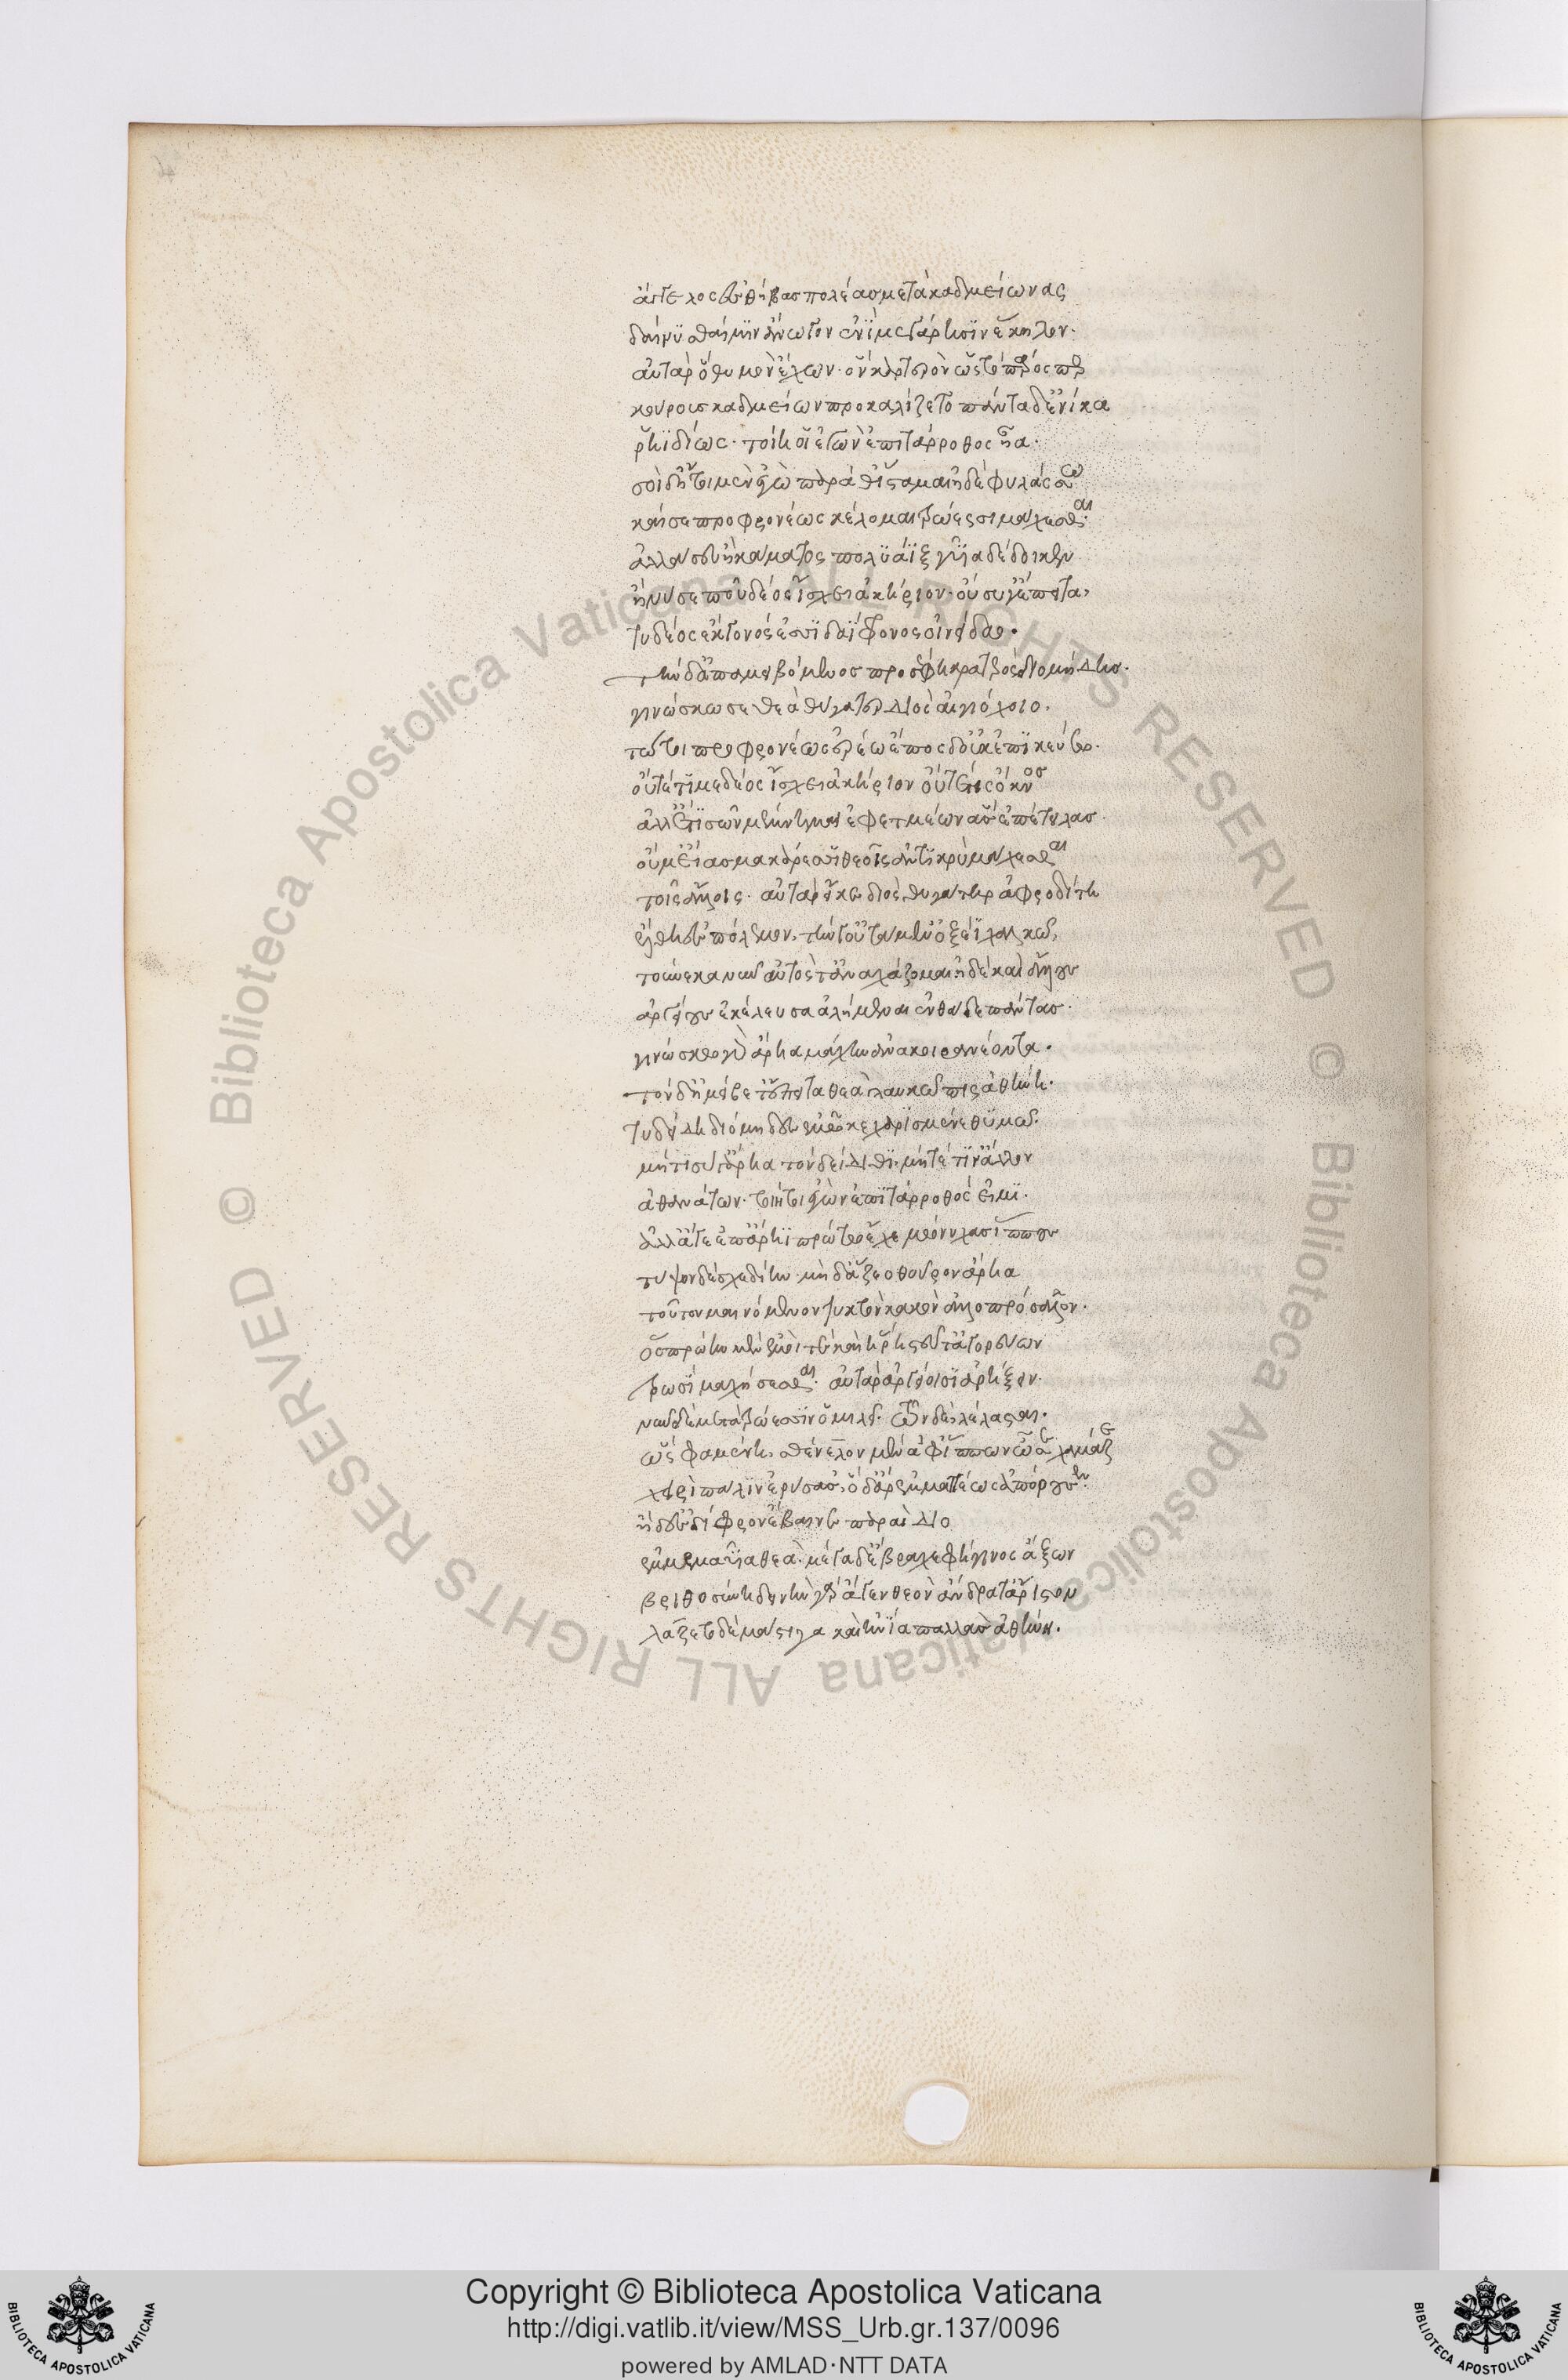 ἄγγελος ἐς θήβας πολέας μετὰ καδμείωνας
δαίνυσθαί μιν ἄνωγον ἐνὶ μεγάροισιν ἕκηλον.
αὐτὰρ ὁ θυμὸν ἔχων ὃν καρτερὸν ὡς τὸ πάρος περ
κούρους καδμείων προκαλίζετο πάντα δ' ἐνίκα
ῥηϊδίως. τοίη οἱ ἐγὼν ἐπιτάρροθος ἦα.
σοὶ δ' ἤτοι μὲν ἐγὼ παρά θ' ἵσταμαι ἠδὲ φυλάσσω
καί σε προφρονέως κέλομαι τρώεσσι μάχεσθαι.
ἀλλά σευ ἢ κάματος πολυάϊξ γυῖα δέδυκεν
ἤ νύ σε που δέος ἴσχει ἀκήριον. οὐ σύ γ' ἔπειτα
τυδέος ἔκγονός ἐσσι δαΐφρονος οἰνείδαο.
τὴν δ' ἀπαμειβόμενος προσέφη κρατερὸς διομήδης.
γινώσκω σε θεὰ θύγατερ διὸς αἰγιόχοιο.
τῷ τοι προφρονέως ἐρέω ἔπος οὐδ' ἐπικεύσω.
οὔτέ τί με δέος ἴσχει ἀκήριον οὔτέ τις ὄκνος
ἀλλ' ἔτι σῶν μέμνημαι ἐφετμέων ἃς ἐπέτειλας.
οὔ μ' εἴας μακάρεσσι θεοῖς ἀντικρὺ μάχεσθαι
τοῖς ἄλλοις. αὐτὰρ εἴ κε διὸς θυγάτηρ ἀφροδίτη
ἔλθησ' ἐς πόλεμον, τήν γ' οὐτάμεν ὀξέϊ χαλκῷ,
τοὔνεκα νῦν αὐτός τ' ἀναχάζομαι ἠδὲ καὶ ἄλλους
ἀργείους ἐκέλευσα ἀλήμεναι ἐνθάδε πάντας.
γινώσκω γὰρ ἄρηα μάχην ἀνακοιρανέοντα.
τὸν δ' ἠμείβετ' ἔπειτα θεὰ γλαυκῶπις ἀθήνη.
τυδείδη διόμηδες ἐμῷ κεχαρισμένε θυμῷ.
μήτε σύ γ' ἄρηα τόν γε δείδιθι μήτέ τιν' ἄλλον
ἀθανάτων. τοίη τοι ἐγὼν ἐπιτάρροθός εἰμι.
ἀλλ' ἄγε ἐπ' ἄρηϊ πρώτῳ ἔχε μώνυχας ἵππους
τύψον δὲ σχεδίην. μὴ δ' ἅζεο θοῦρον ἄρηα
τοῦτον μαινόμενον τυκτὸν κακὸν ἀλλοπρόσαλλον.
ὃς πρώην μὲν ἐμοί τε καὶ ἥρῃ στεῦτ' ἀγορεύων
τρωσὶ μαχήσεσθαι. αὐτὰρ ἀργείοισιν ἀρήξειν.
νῦν δὲ μετὰ τρώεσσιν ὁμιλεῖ. τῶν δὲ λέλασται.
ὣς φαμένη, σθένελον μὲν ἀφ' ἵππων ὦσε χαμᾶζε
χειρὶ πάλιν ἐρύσασ', ὁ δ' ἄρ' ἐμμαπέως ἀπόρουσεν.
ἡ δ' ἐς δίφρον ἔβαινε παραὶ διο
ἐμμεμαυῖα θεά. μέγα δ' ἔβραχε φήγινος ἄξων
βριθοσύνῃ δεινὴν γὰρ ἄγεν θεὸν ἄνδρά τ' ἄριστον
λάζετο δὲ μάστιγα καὶ ἡνία παλλὰς ἀθήνη.
Copyright © Biblioteca Apostolica Vaticana
http://digi.vatlib.it/view/MSS_Urb.gr.137/0096
powered by AMLAD·NTT DATA